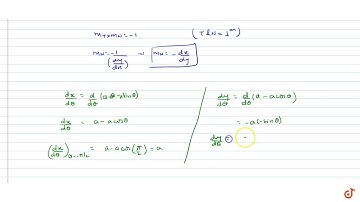 m_T × m_N = -1 (T ⊥ N = 1^m)
m_N = -1/(dy/dx) ⇒ m_N = -dx/dy
dx/dθ = d/dθ (aθ - a sinθ)
dx/dθ = a - a cosθ
(dx/dθ)_θ=π/2 = a - a cos(π/2) = a
dy/dθ = d/dθ (a - a cosθ)
= -a(-sinθ)
dy/dθ =